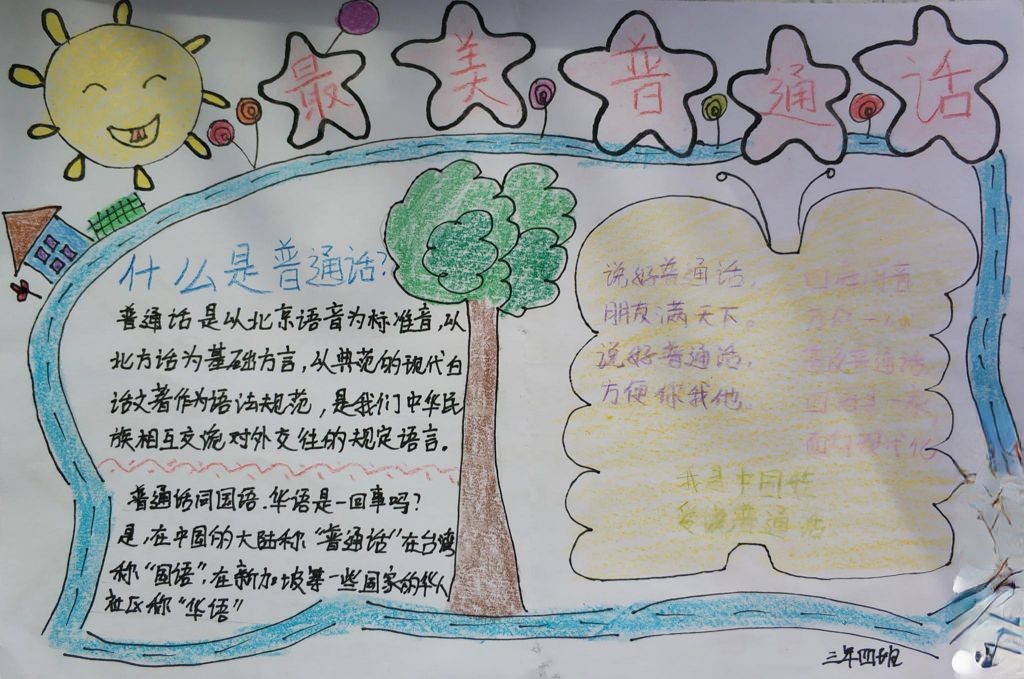 最美普通话
什么是普通话?
普通话是以北京语音为标准音,以
北方话为基础方言,以典范的现代白
话文著作为语法规范,是我们中华民
族相互交流对外交往的规定语言。
普通话同国语.华语是一回事吗?
是,在中国的大陆称“普通话”在台湾
称“国语”,在新加坡等一些国家的华人
社区称“华语”
说好普通话,
朋友满天下。
说好普通话,
方便你我他。
普及普通话,
四海一家
面向现代化
我是中国
爱说普通话
三年四班